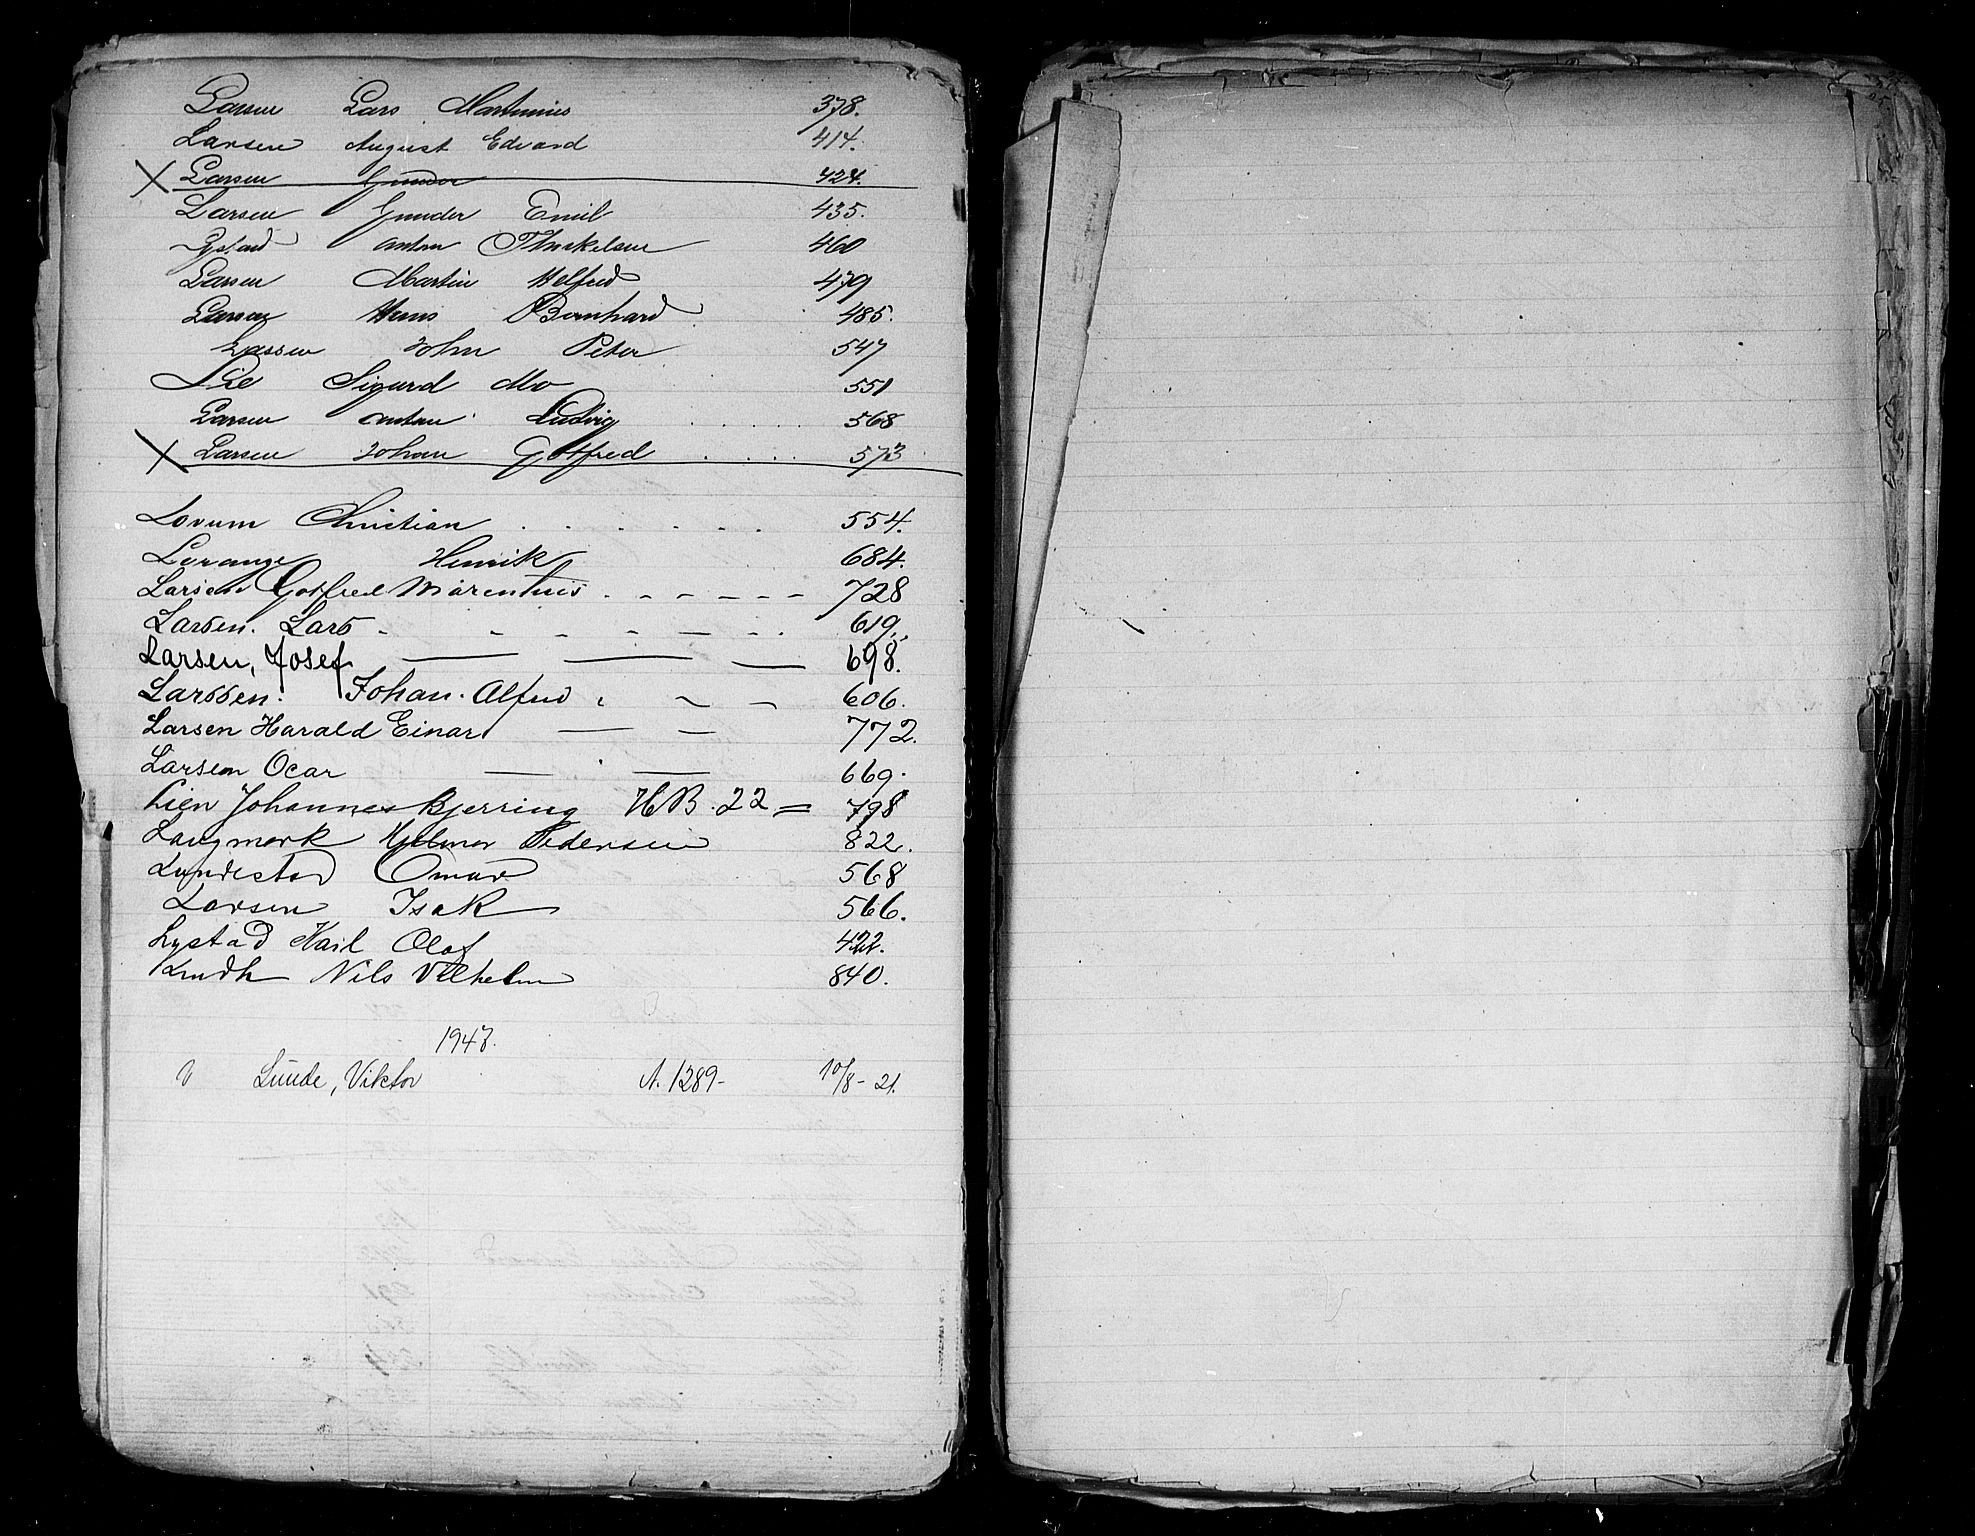 Larsen Lars Martinius 378.
Larsen August Edvard 414.
X Larsen Gunder 424.
Larsen Gunder Emil 435.
Lystad Anton Thorkelsen 460
Larsen Martin Helfred 479
Larsen Hans Bernhard 485.
Larsen John Peter 547
Lie Sigurd Mo 551
Larsen Anton Ludvig . . . . . 568
X Larsen Johan Gotfred . . . . 573
Lovum Christian . . . . . . 554.
Lorange Henrik 684.
Larsen Gotfred Marenthius . - - - - - - 728
Larsen. Lars - - - - - . . 619.
Larsen, Josef — — — 698.
Larssen. Johan. Alfred 606.
Larsen Harald Einar — — 772.
Larsen Ocar — . — 669.
Lien Johannes Bjerring HB. 22 = 798
Langmark Hjelmar Pedersen 822.
Lundestad Omar 568
Larsen Isak 566.
Lystad Karl Olaf 422.
Nils Vilhelm 840.
1947.
Lunde, Viktor A. 1289- 10/8 - 21.